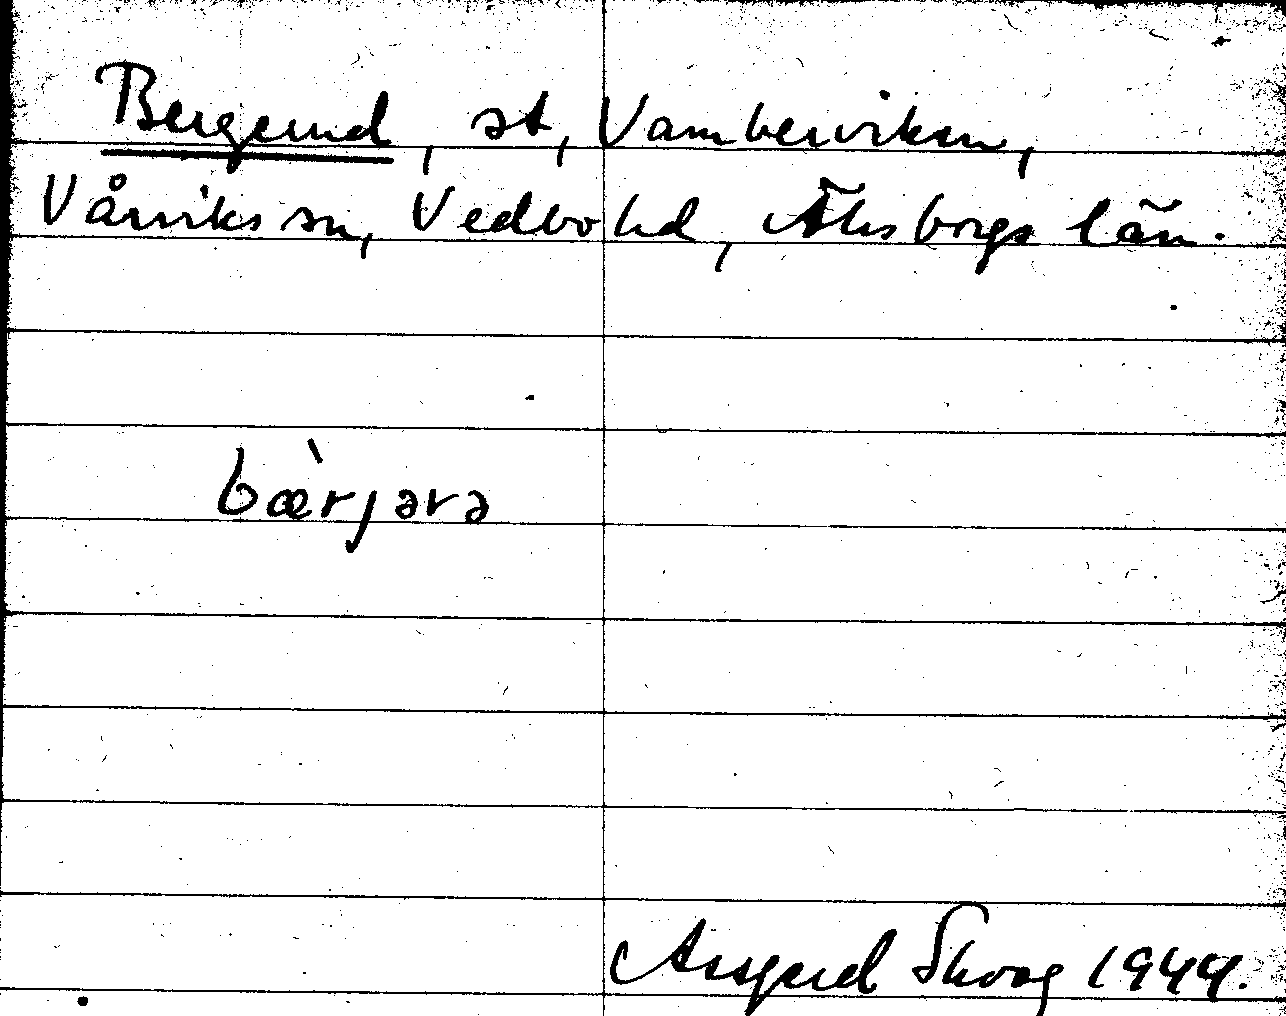 Bergerud, st, Vamberviken,
Vårviks sn, Vedbo hd, Älvsborgs län.
bæ̀rjərə
Assgerd Skoog 1944.